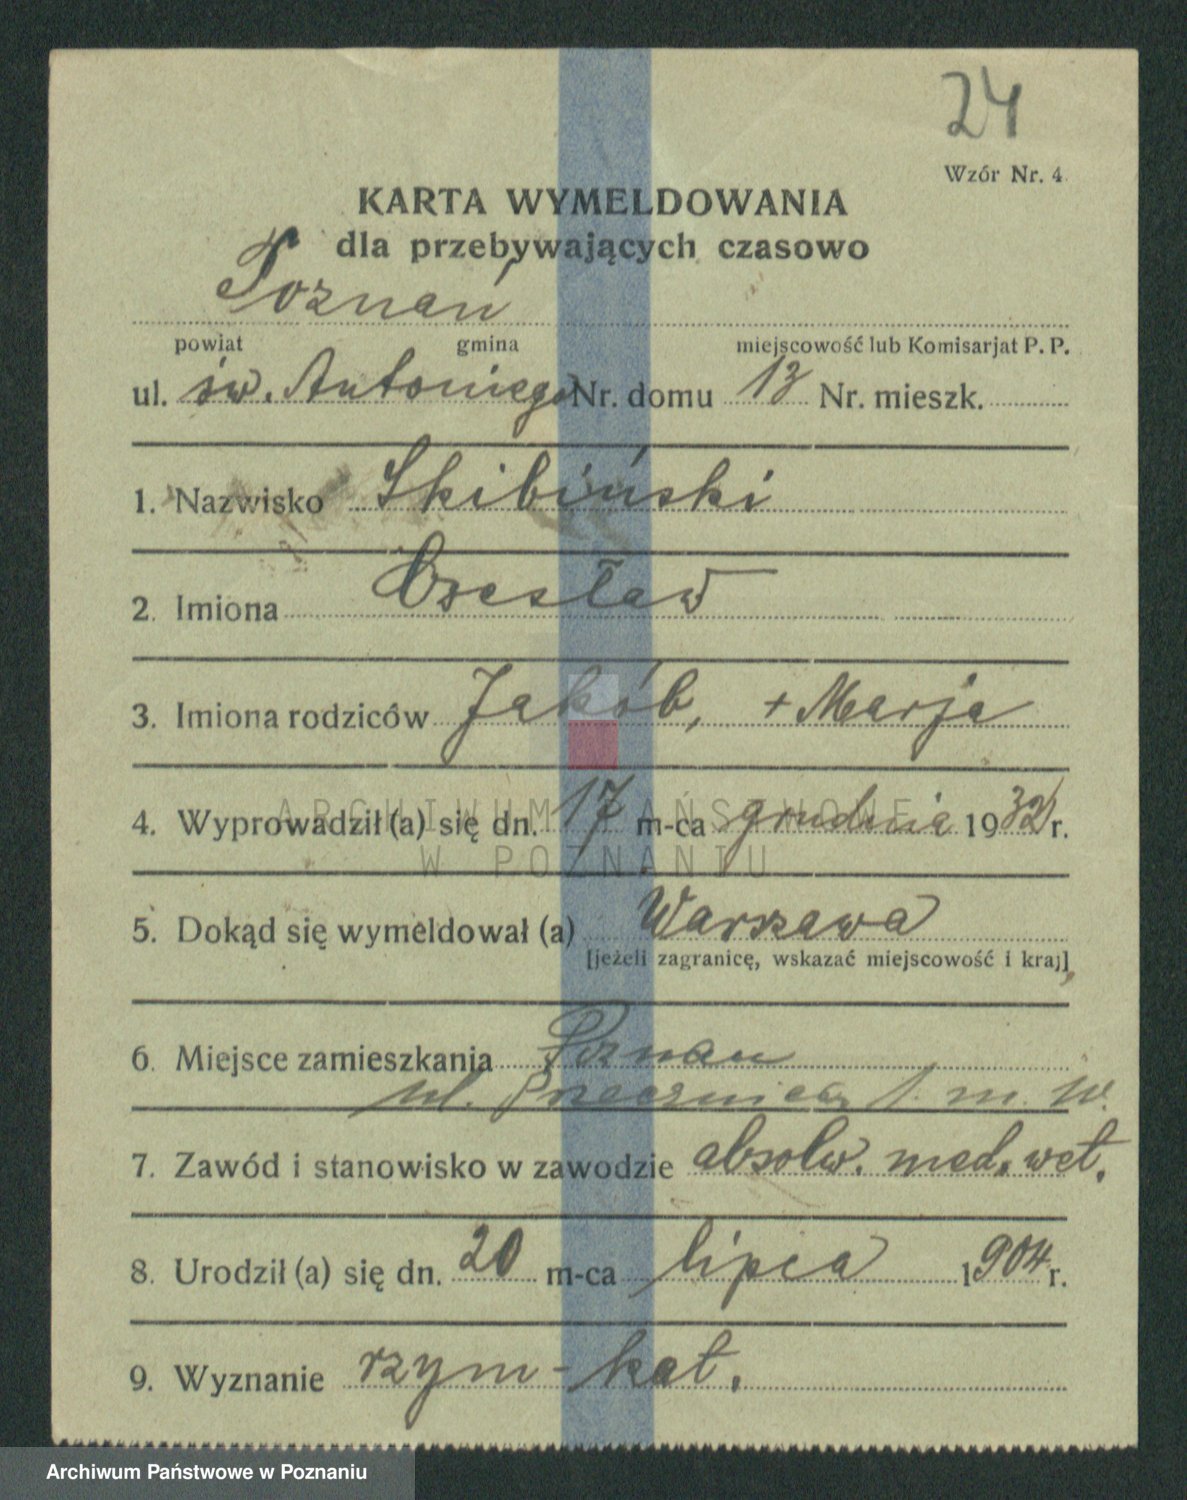 24
Wzór Nr. 4
KARTA WYMELDOWANIA
dla przebywających czasowo
Poznań
powiat gmina miejscowość lub Komisarjat P. P.
ul. św. Antoniego Nr. domu 13 Nr. mieszk.
1. Nazwisko Skibiński
2. Imiona Czesław
3. Imiona rodziców Jakób, + Marja
4. Wyprowadził (a) się dn. 17 m-ca grudnia 1932 r.
ARCHIWUM PAŃSTWOWE
W POZNANIU
5. Dokąd się wymeldował (a) Warszawa
[jeżeli zagranicę, wskazać miejscowość i kraj]
6. Miejsce zamieszkania Poznań
ul. 1. m.
7. Zawód i stanowisko w zawodzie absolw. med. wet.
8. Urodził (a) się dn. 20 m-ca lipca 1904 r.
9. Wyznanie rzym-kat.
Archiwum Państwowe w Poznaniu